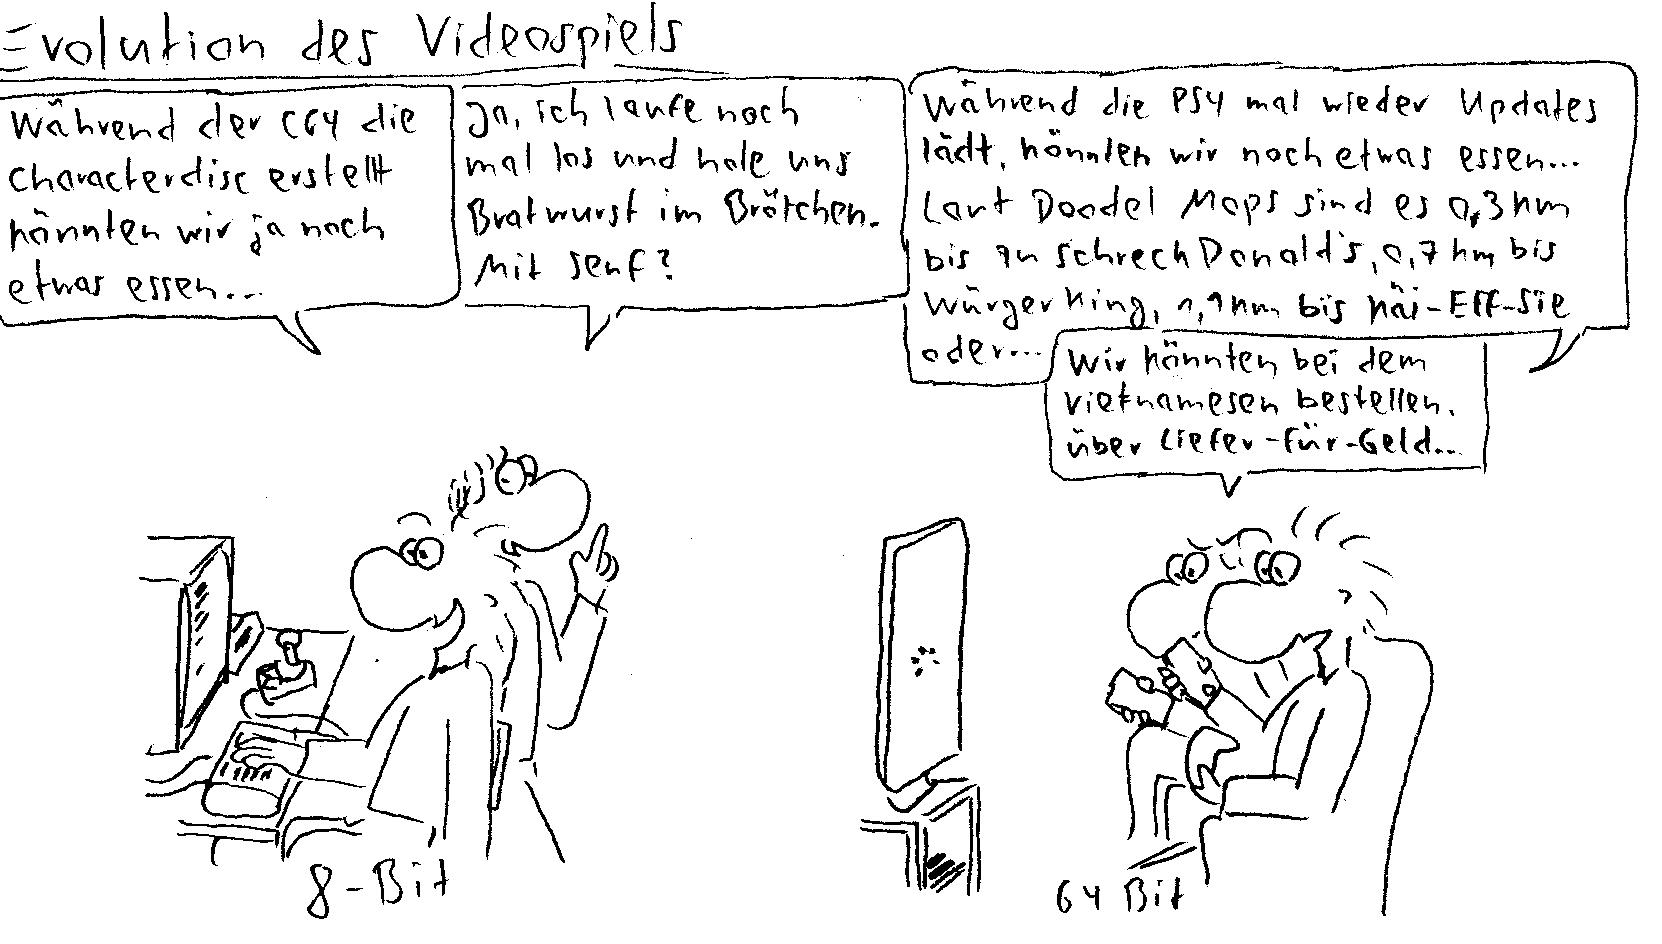 Evolution des Videospiels
Während der C64 die
Characterdisc erstellt
könnten wir ja noch
etwas essen...
Ja, ich laufe noch
mal los und hole uns
Bratwurst im Brötchen.
Mit Senf?
Während die PS4 mal wieder Updates
lädt, könnten wir noch etwas essen...
Laut Doodel Maps sind es 0,3 km
bis zu SchreckDonald's, 0,7 km bis
Würger King, 1,1 km bis käi-Eff-Sie
oder...
Wir könnten bei dem
Vietnamesen bestellen.
über Liefer-für-Geld...
8-Bit
64 Bit